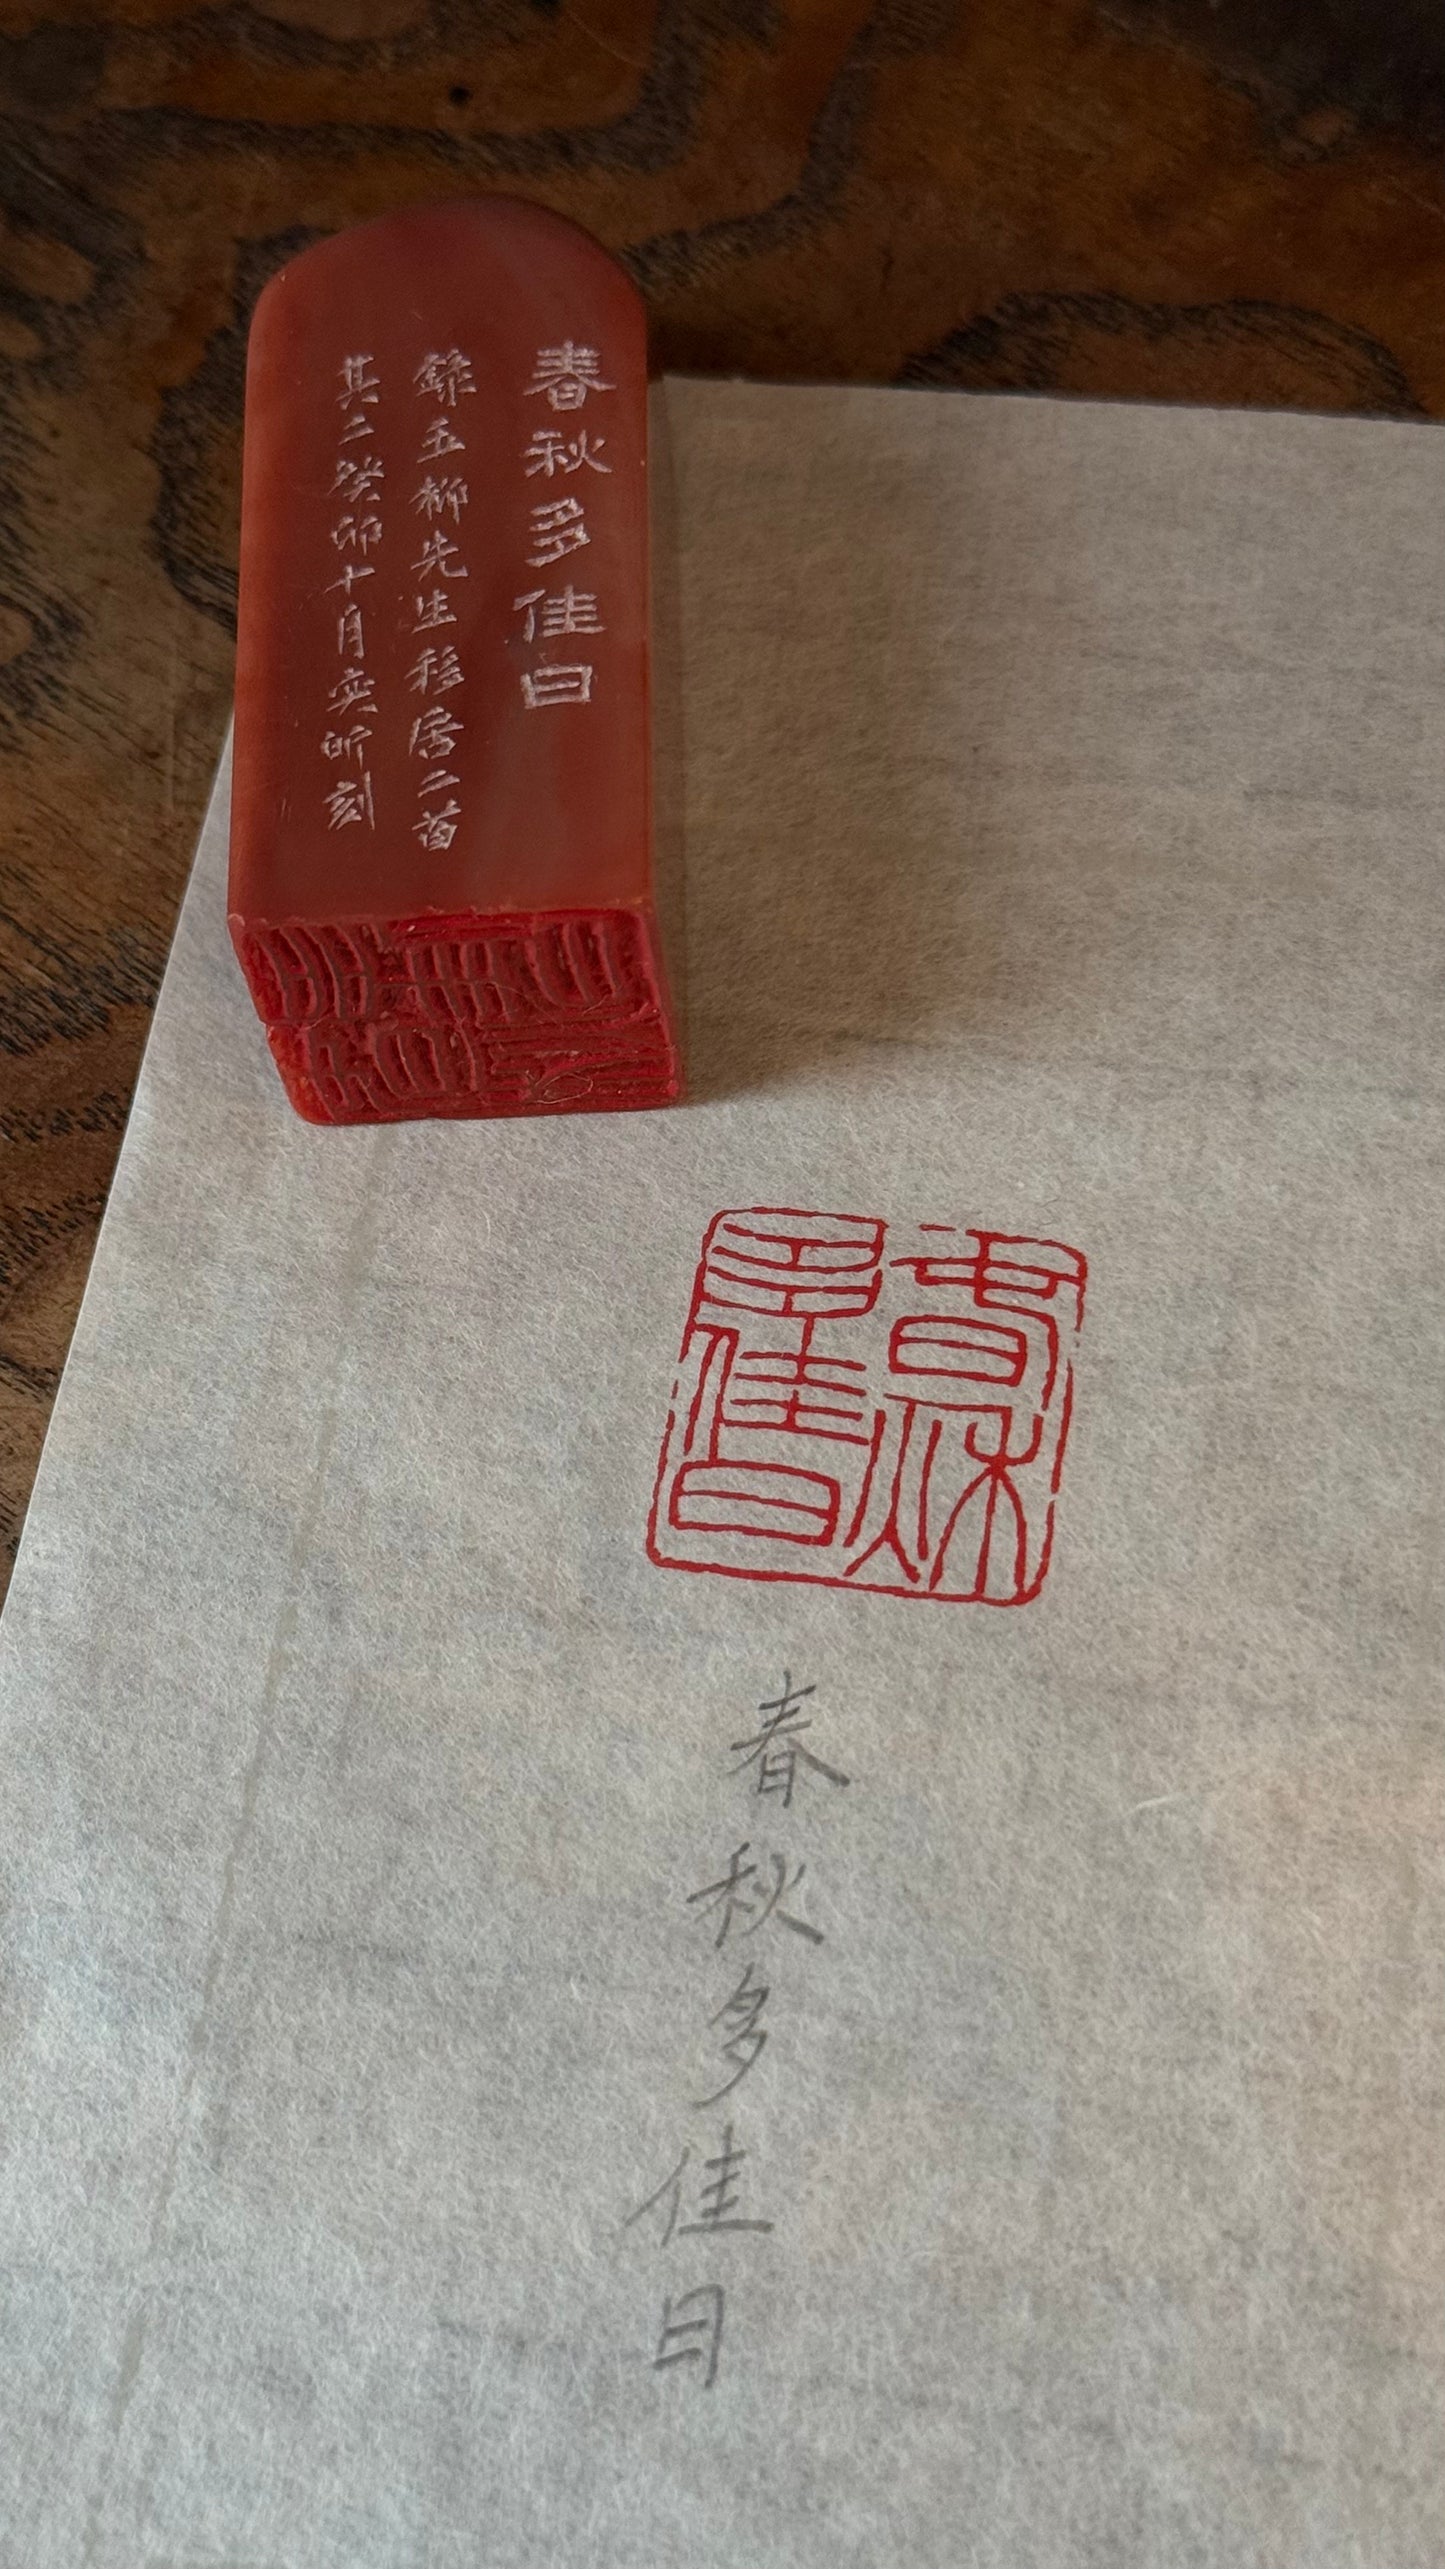 春秋多佳日
錄五柳先生移居二首
其二癸卯十月奕昕刻
春秋
多佳日
春秋多佳日